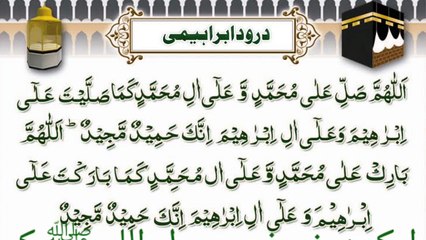 درود ابراہیمی
اَللّٰهُمَّ صَلِّ عَلٰى مُحَمَّدٍ وَّ عَلٰٓى اٰلِ مُحَمَّدٍ كَمَا صَلَّيْتَ عَلٰٓى
اِبْرٰهِيْمَ وَعَلٰٓى اٰلِ اِبْرٰهِيْمَ اِنَّكَ حَمِيْدٌ مَّجِيْدٌ ؕ اَللّٰهُمَّ
بَارِكْ عَلٰى مُحَمَّدٍ وَّ عَلٰٓى اٰلِ مُحَمَّدٍ كَمَا بَارَكْتَ عَلٰٓى
اِبْرٰهِيْمَ وَ عَلٰٓى اٰلِ اِبْرٰهِيْمَ اِنَّكَ حَمِيْدٌ مَّجِيْدٌ
ﷺ